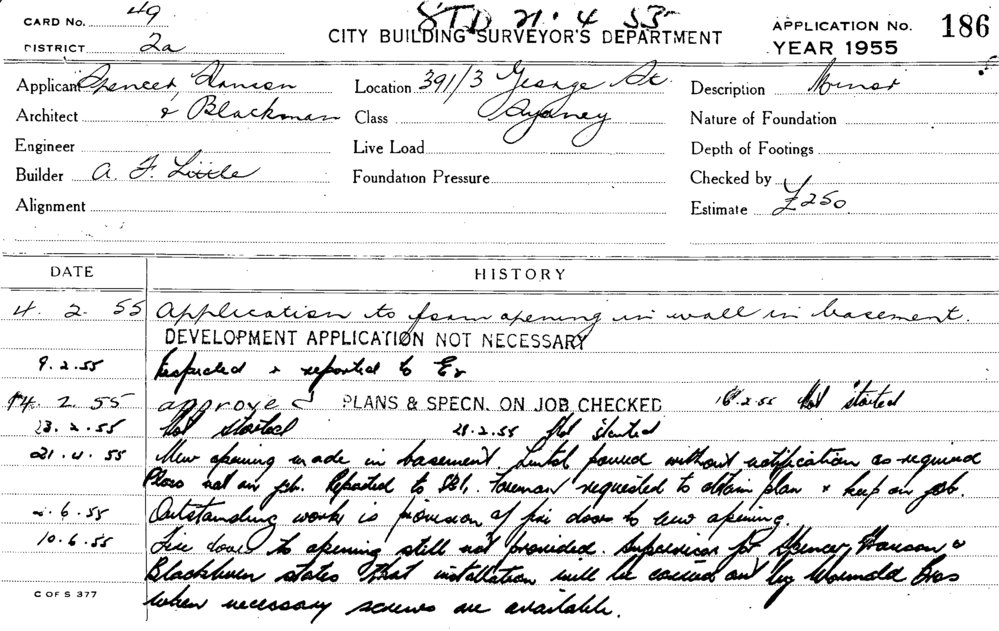 CARD NO. 49
STD 21.4 55
DISTRICT 2a
CITY BUILDING SURVEYOR'S DEPARTMENT
APPLICATION No. 186
YEAR 1955
Applicant Spencer Hanson
Location 391/3 George St
Description Minor
Architect & Blackman
Class Sydney
Nature of Foundation
Engineer
Live Load
Depth of Footings
Builder A. F. Little
Foundation Pressure
Checked by
Alignment
Estimate £250.
DATE HISTORY
4. 2. 55 Application to form opening in wall in basement.
DEVELOPMENT APPLICATION NOT NECESSARY
9.2.55 Inspected & reported to
14. 2. 55 approved PLANS & SPECN. ON JOB CHECKED 16.2.55 Not started
23.2.55 Not started 28.2.55 Not started
21.4.55 New opening made in basement. Lintol poured without notification as required
Plans not on job. Reported to Foreman requested to obtain plan & keep on job.
2.6.55 Outstanding work is provision of fire doors to new opening.
10.6.55 Fire doors to opening still not provided. Supervisor for Spencer, Hanson &
Blackburn states that installation will be carried out by Wormald Bros
C OF S 377
when necessary screws are available.